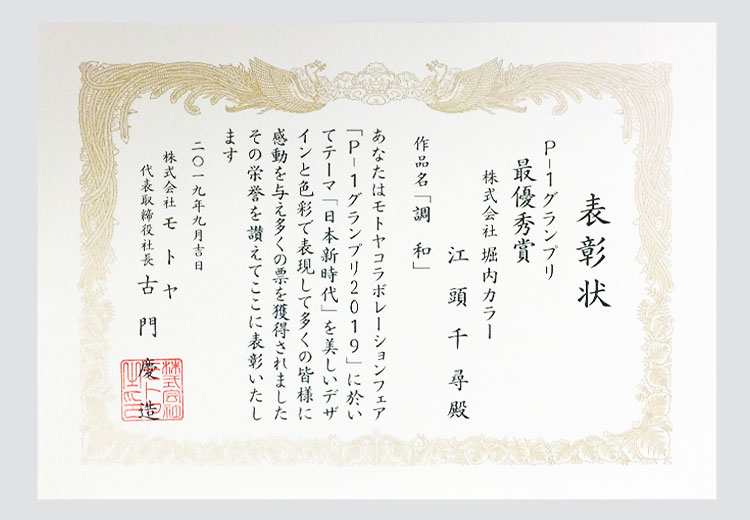 表彰状
P-1グランプリ
最優秀賞
株式会社 堀内カラー
江頭千尋殿
作品名「調 和」
あなたはモトヤコラボレーションフェア
「P-1グランプリ2019」に於い
てテーマ「日本新時代」を美しいデザ
インと色彩で表現して多くの皆様に
感動を与え多くの票を獲得されました
その栄誉を讃えてここに表彰いたし
ます
二〇一九年九月吉日
株式会社 モトヤ
代表取締役社長 古門慶造